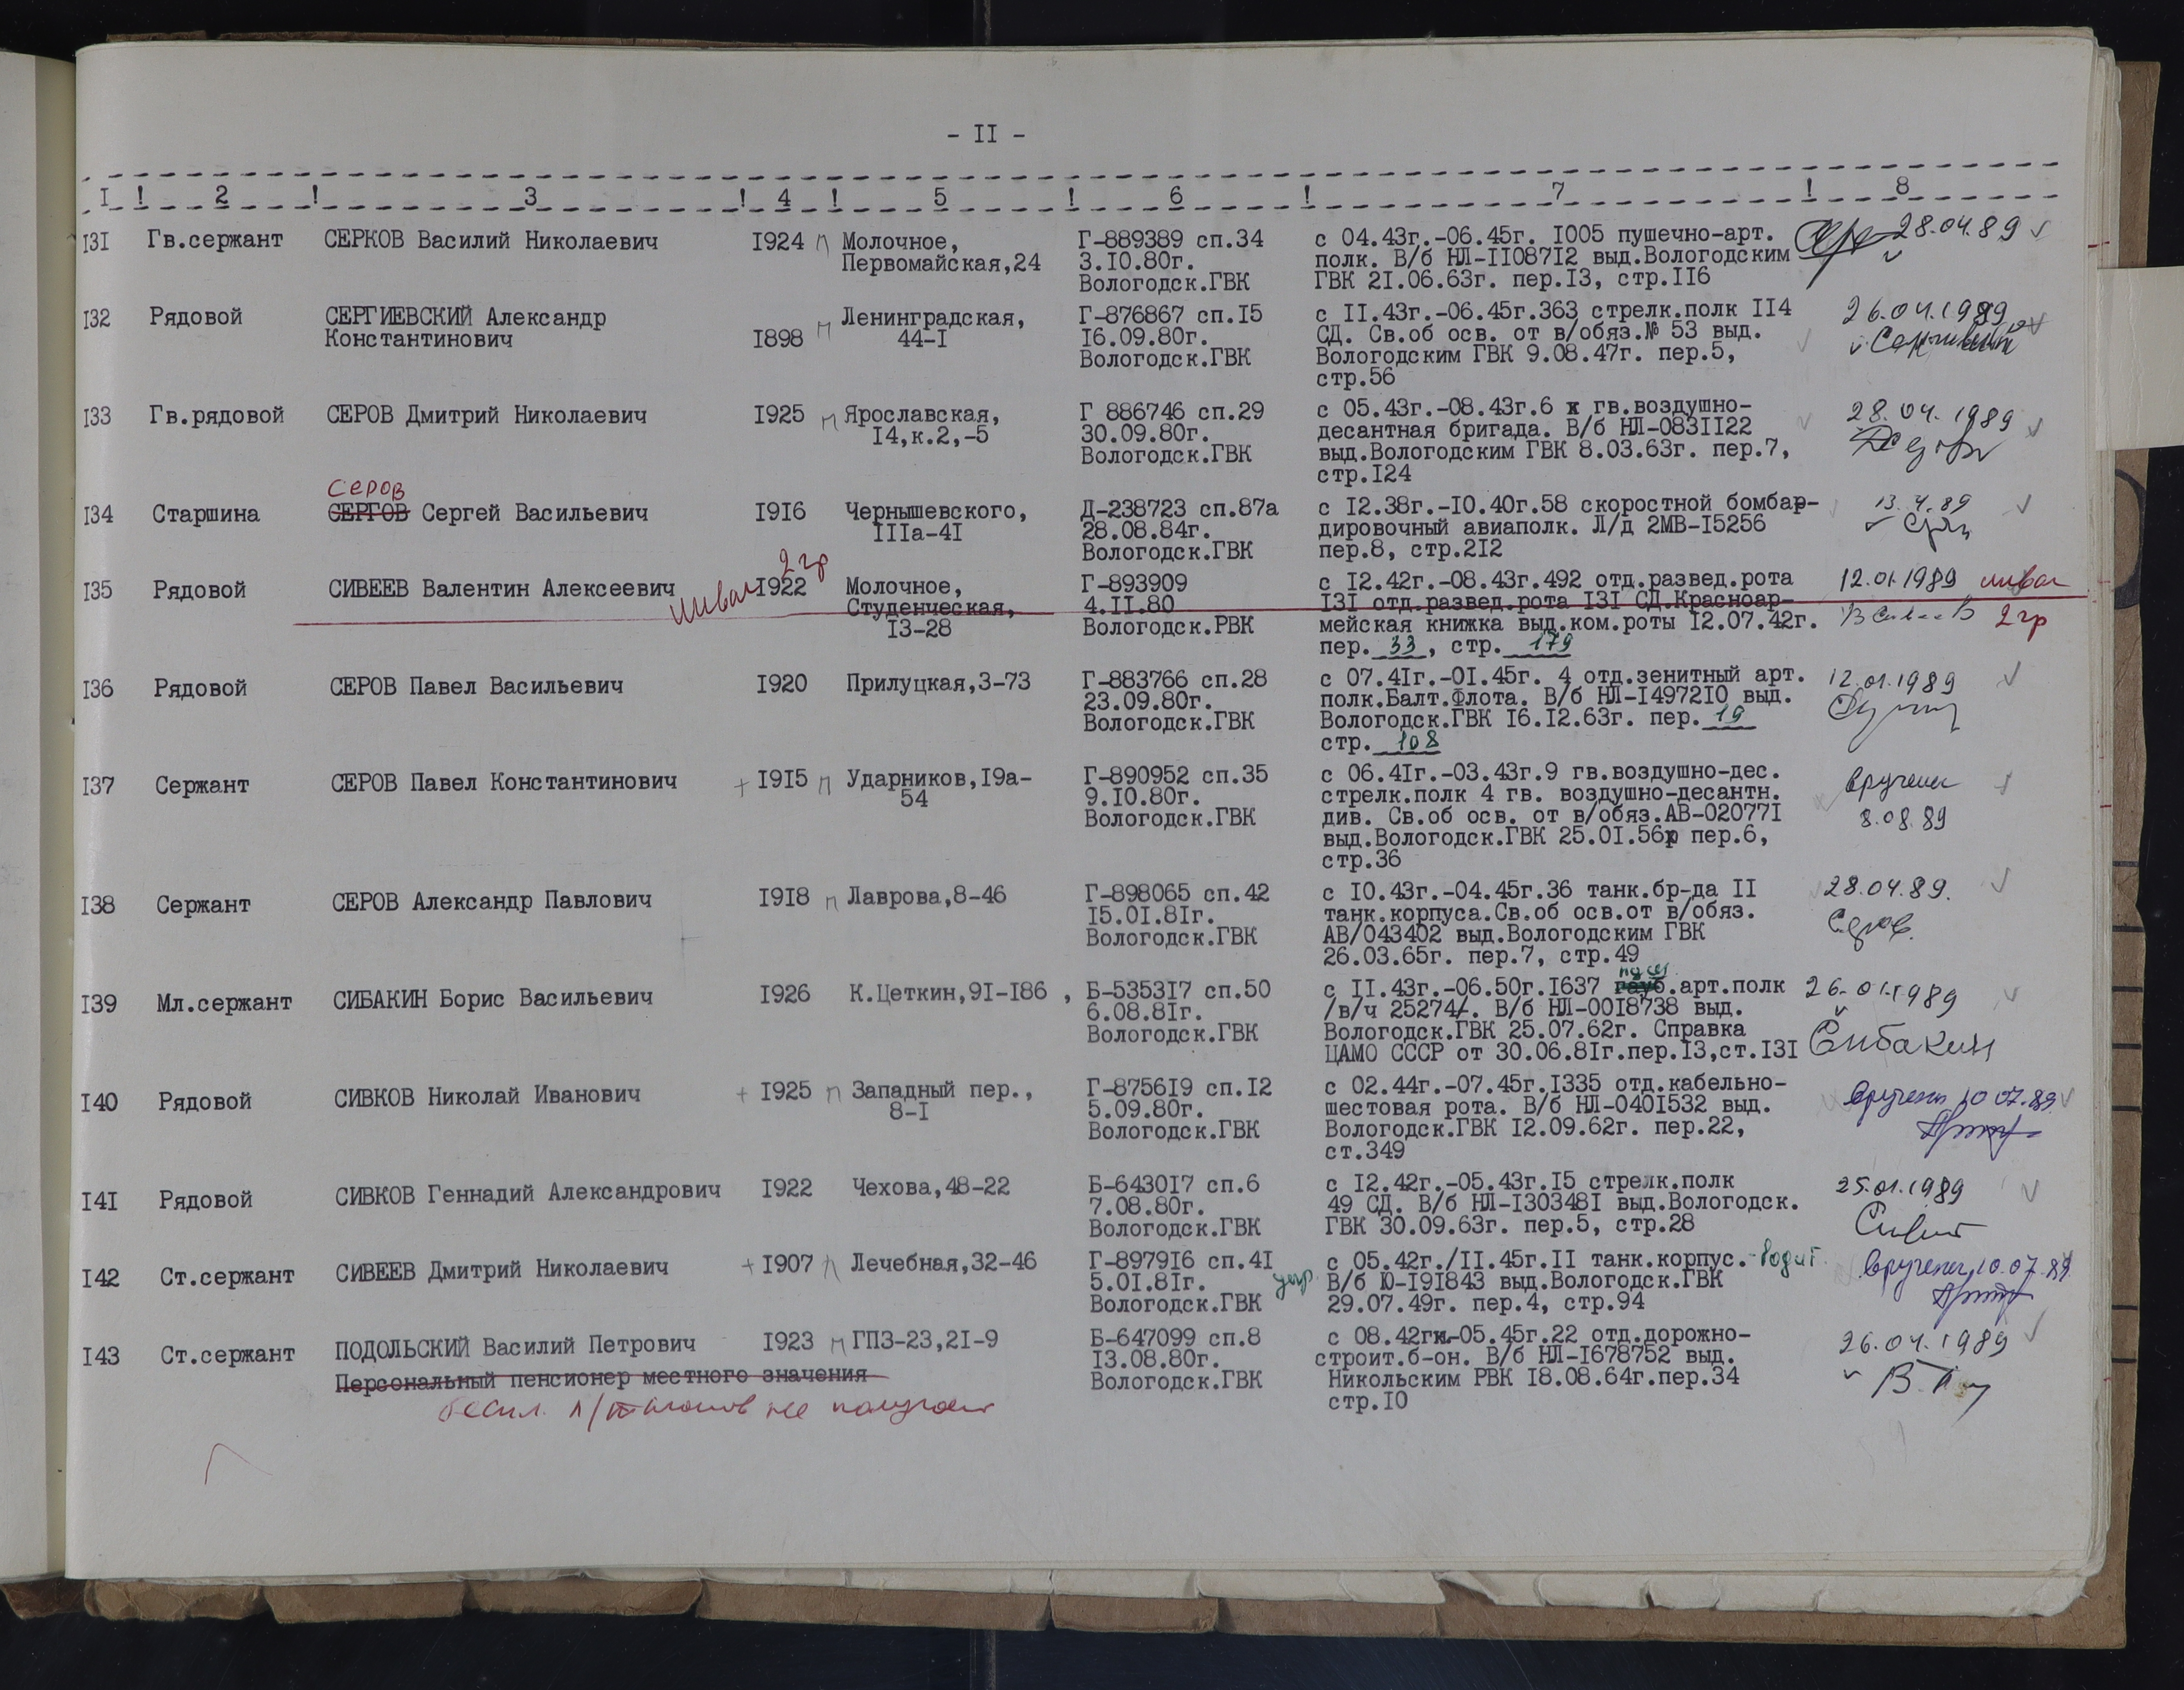 - II -
I ! 2 ! 3 ! 4 ! 5 ! 6 ! 7 ! 8
I3I Гв.сержант СЕРКОВ Василий Николаевич I924 п Молочное, Г-889389 сп.34 с 04.43г.-06.45г. I005 пушечно-арт. 28.04.89
Первомайская,24 3.I0.80г. полк. В/б НЛ-II087I2 выд.Вологодским
Вологодск.ГВК ГВК 2I.06.63г. пер.I3, стр.II6
I32 Рядовой СЕРГИЕВСКИЙ Александр п Ленинградская, Г-876867 сп.I5 с II.43г.-06.45г.363 стрелк.полк II4 26.04.1989
Константинович I898 44-I I6.09.80г. СД. Св.об осв. от в/обяз.№ 53 выд.
Вологодск.ГВК Вологодским ГВК 9.08.47г. пер.5,
стр.56
I33 Гв.рядовой СЕРОВ Дмитрий Николаевич I925 п Ярославская, Г 886746 сп.29 с 05.43г.-08.43г.6 х гв.воздушно- 28.04.1989
I4,к.2,-5 30.09.80г. десантная бригада. В/б НЛ-083II22
Вологодск.ГВК выд.Вологодским ГВК 8.03.63г. пер.7,
стр.I24
Серов
I34 Старшина СЕРГОВ Сергей Васильевич I9I6 Чернышевского, Д-238723 сп.87а с I2.38г.-I0.40г.58 скоростной бомбар- 13.4.89
IIIа-4I 28.08.84г. дировочный авиаполк. Л/д 2МВ-I5256
Вологодск.ГВК пер.8, стр.2I2
2 гр
I35 Рядовой СИВЕЕВ Валентин Алексеевич инвал I922 Молочное, Г-893909 с I2.42г.-08.43г.492 отд.развед.рота 12.01.1989 инвал
Студенческая, 4.II.80 I3I отд.развед.рота I3I СД.Красноар-
I3-28 Вологодск.РВК мейская книжка выд.ком.роты I2.07.42г. 2 гр
пер. 33, стр. 179
I36 Рядовой СЕРОВ Павел Васильевич I920 Прилуцкая,3-73 Г-883766 сп.28 с 07.4Iг.-0I.45г. 4 отд.зенитный арт. 12.01.1989
23.09.80г. полк.Балт.Флота. В/б НЛ-I4972I0 выд.
Вологодск.ГВК Вологодск.ГВК I6.I2.63г. пер. 19
стр. 108
I37 Сержант СЕРОВ Павел Константинович + I9I5 п Ударников,I9а- Г-890952 сп.35 с 06.4Iг.-03.43г.9 гв.воздушно-дес. вручены
54 9.I0.80г. стрелк.полк 4 гв. воздушно-десантн.
Вологодск.ГВК див. Св.об осв. от в/обяз.АВ-02077I 8.08.89
выд.Вологодск.ГВК 25.0I.56г пер.6,
стр.36
I38 Сержант СЕРОВ Александр Павлович I9I8 п Лаврова,8-46 Г-898065 сп.42 с I0.43г.-04.45г.36 танк.бр-да II 28.04.89.
I5.0I.8Iг. танк.корпуса.Св.об осв.от в/обяз. Серов.
Вологодск.ГВК АВ/043402 выд.Вологодским ГВК
26.03.65г. пер.7, стр.49
I39 Мл.сержант СИБАКИН Борис Васильевич I926 К.Цеткин,9I-I86 , Б-5353I7 сп.50 с II.43г.-06.50г.I637 гауб.арт.полк 26.01.1989
6.08.8Iг. /в/ч 25274/. В/б НЛ-00I8738 выд.
Вологодск.ГВК Вологодск.ГВК 25.07.62г. Справка
ЦАМО СССР от 30.06.8Iг.пер.I3,ст.I3I Сибакин
I40 Рядовой СИВКОВ Николай Иванович + I925 п Западный пер., Г-8756I9 сп.I2 с 02.44г.-07.45г.I335 отд.кабельно- вручены 10 07.89
8-I 5.09.80г. шестовая рота. В/б НЛ-040I532 выд.
Вологодск.ГВК Вологодск.ГВК I2.09.62г. пер.22,
ст.349
I4I Рядовой СИВКОВ Геннадий Александрович I922 Чехова,48-22 Б-6430I7 сп.6 с I2.42г.-05.43г.I5 стрелк.полк 25.01.1989
7.08.80г. 49 СД. В/б НЛ-I30348I выд.Вологодск.
Вологодск.ГВК ГВК 30.09.63г. пер.5, стр.28
I42 Ст.сержант СИВЕЕВ Дмитрий Николаевич + I907 п Лечебная,32-46 Г-8979I6 сп.4I с 05.42г./II.45г.II танк.корпус. вручены 10.07.89
5.0I.8Iг. В/б Ю-I9I843 выд.Вологодск.ГВК
Вологодск.ГВК 29.07.49г. пер.4, стр.94
I43 Ст.сержант ПОДОЛЬСКИЙ Василий Петрович I923 п ГПЗ-23,2I-9 Б-647099 сп.8 с 08.42г.-05.45г.22 отд.дорожно- 26.04.1989
I3.08.80г. строит.б-он. В/б НЛ-I678752 выд.
Персональный пенсионер местного значения Вологодск.ГВК Никольским РВК I8.08.64г.пер.34
не получает стр.I0